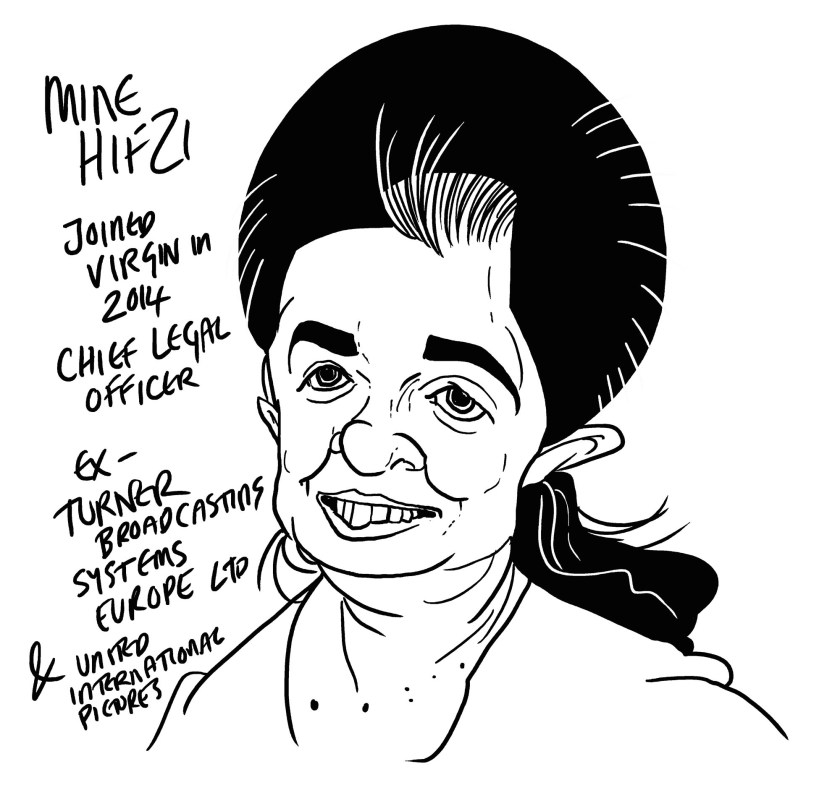 MINE
HIFZI
JOINED
VIRGIN in
2014
CHIEF LEGAL
OFFICER
EX-
TURNER
BROADCASTING
SYSTEMS
EUROPE LTD
& UNITED
INTERNATIONAL
PICTURES